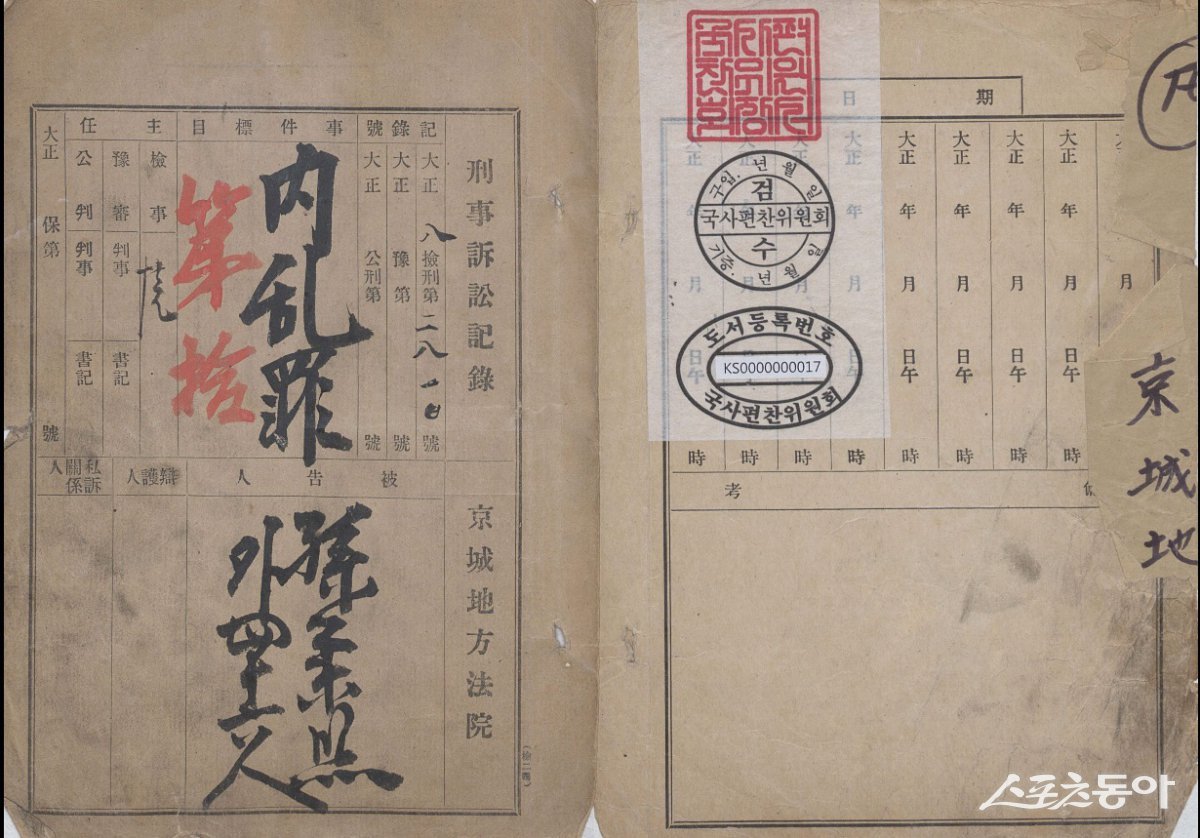 刑事訴訟記錄
京城地方法院
記錄號
大正 八 檢刑第 二八一 號
大正 豫 第 號
大正 公刑第 號
事件標目
内乱罪
第拾
主任
檢事
豫審判事
書記
公判判事
書記
大正
保第
號
被告人
孫秉熙
外四十六人
辯護人
私訴關係人
期日
大正 年 月 日午 時
大正 年 月 日午 時
大正 年 月 日午 時
大正 年 月 日午 時
大正 年 月 日午 時
大正 年 月 日午 時
大正 年 月 日午 時
大正 年 月 日午 時
備考
구입. 년 월 일
검
국사편찬위원회
수
기증. 년 월 일
도서등록번호
KS0000000017
국사편찬위원회
京城地
스포츠동아